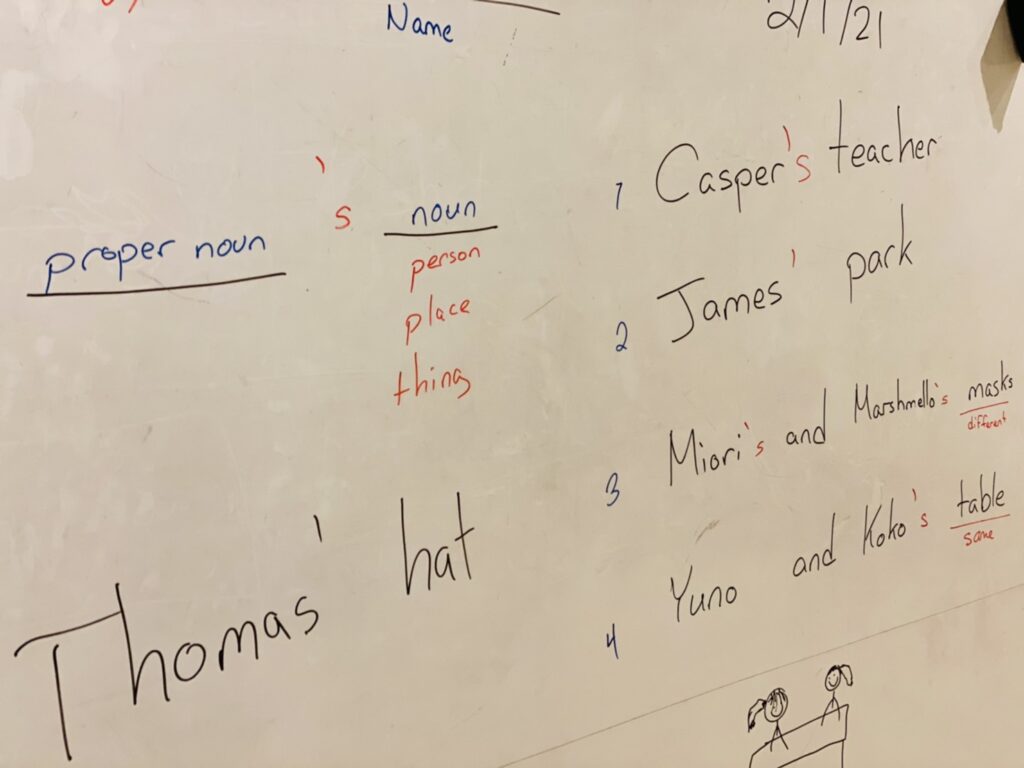 Name
2/1/21
proper noun 's noun
person
place
thing
Thomas' hat
1 Casper's teacher
2 James' park
3 Miori's and Marshmello's masks
different
4 Yuno and Koko's table
same